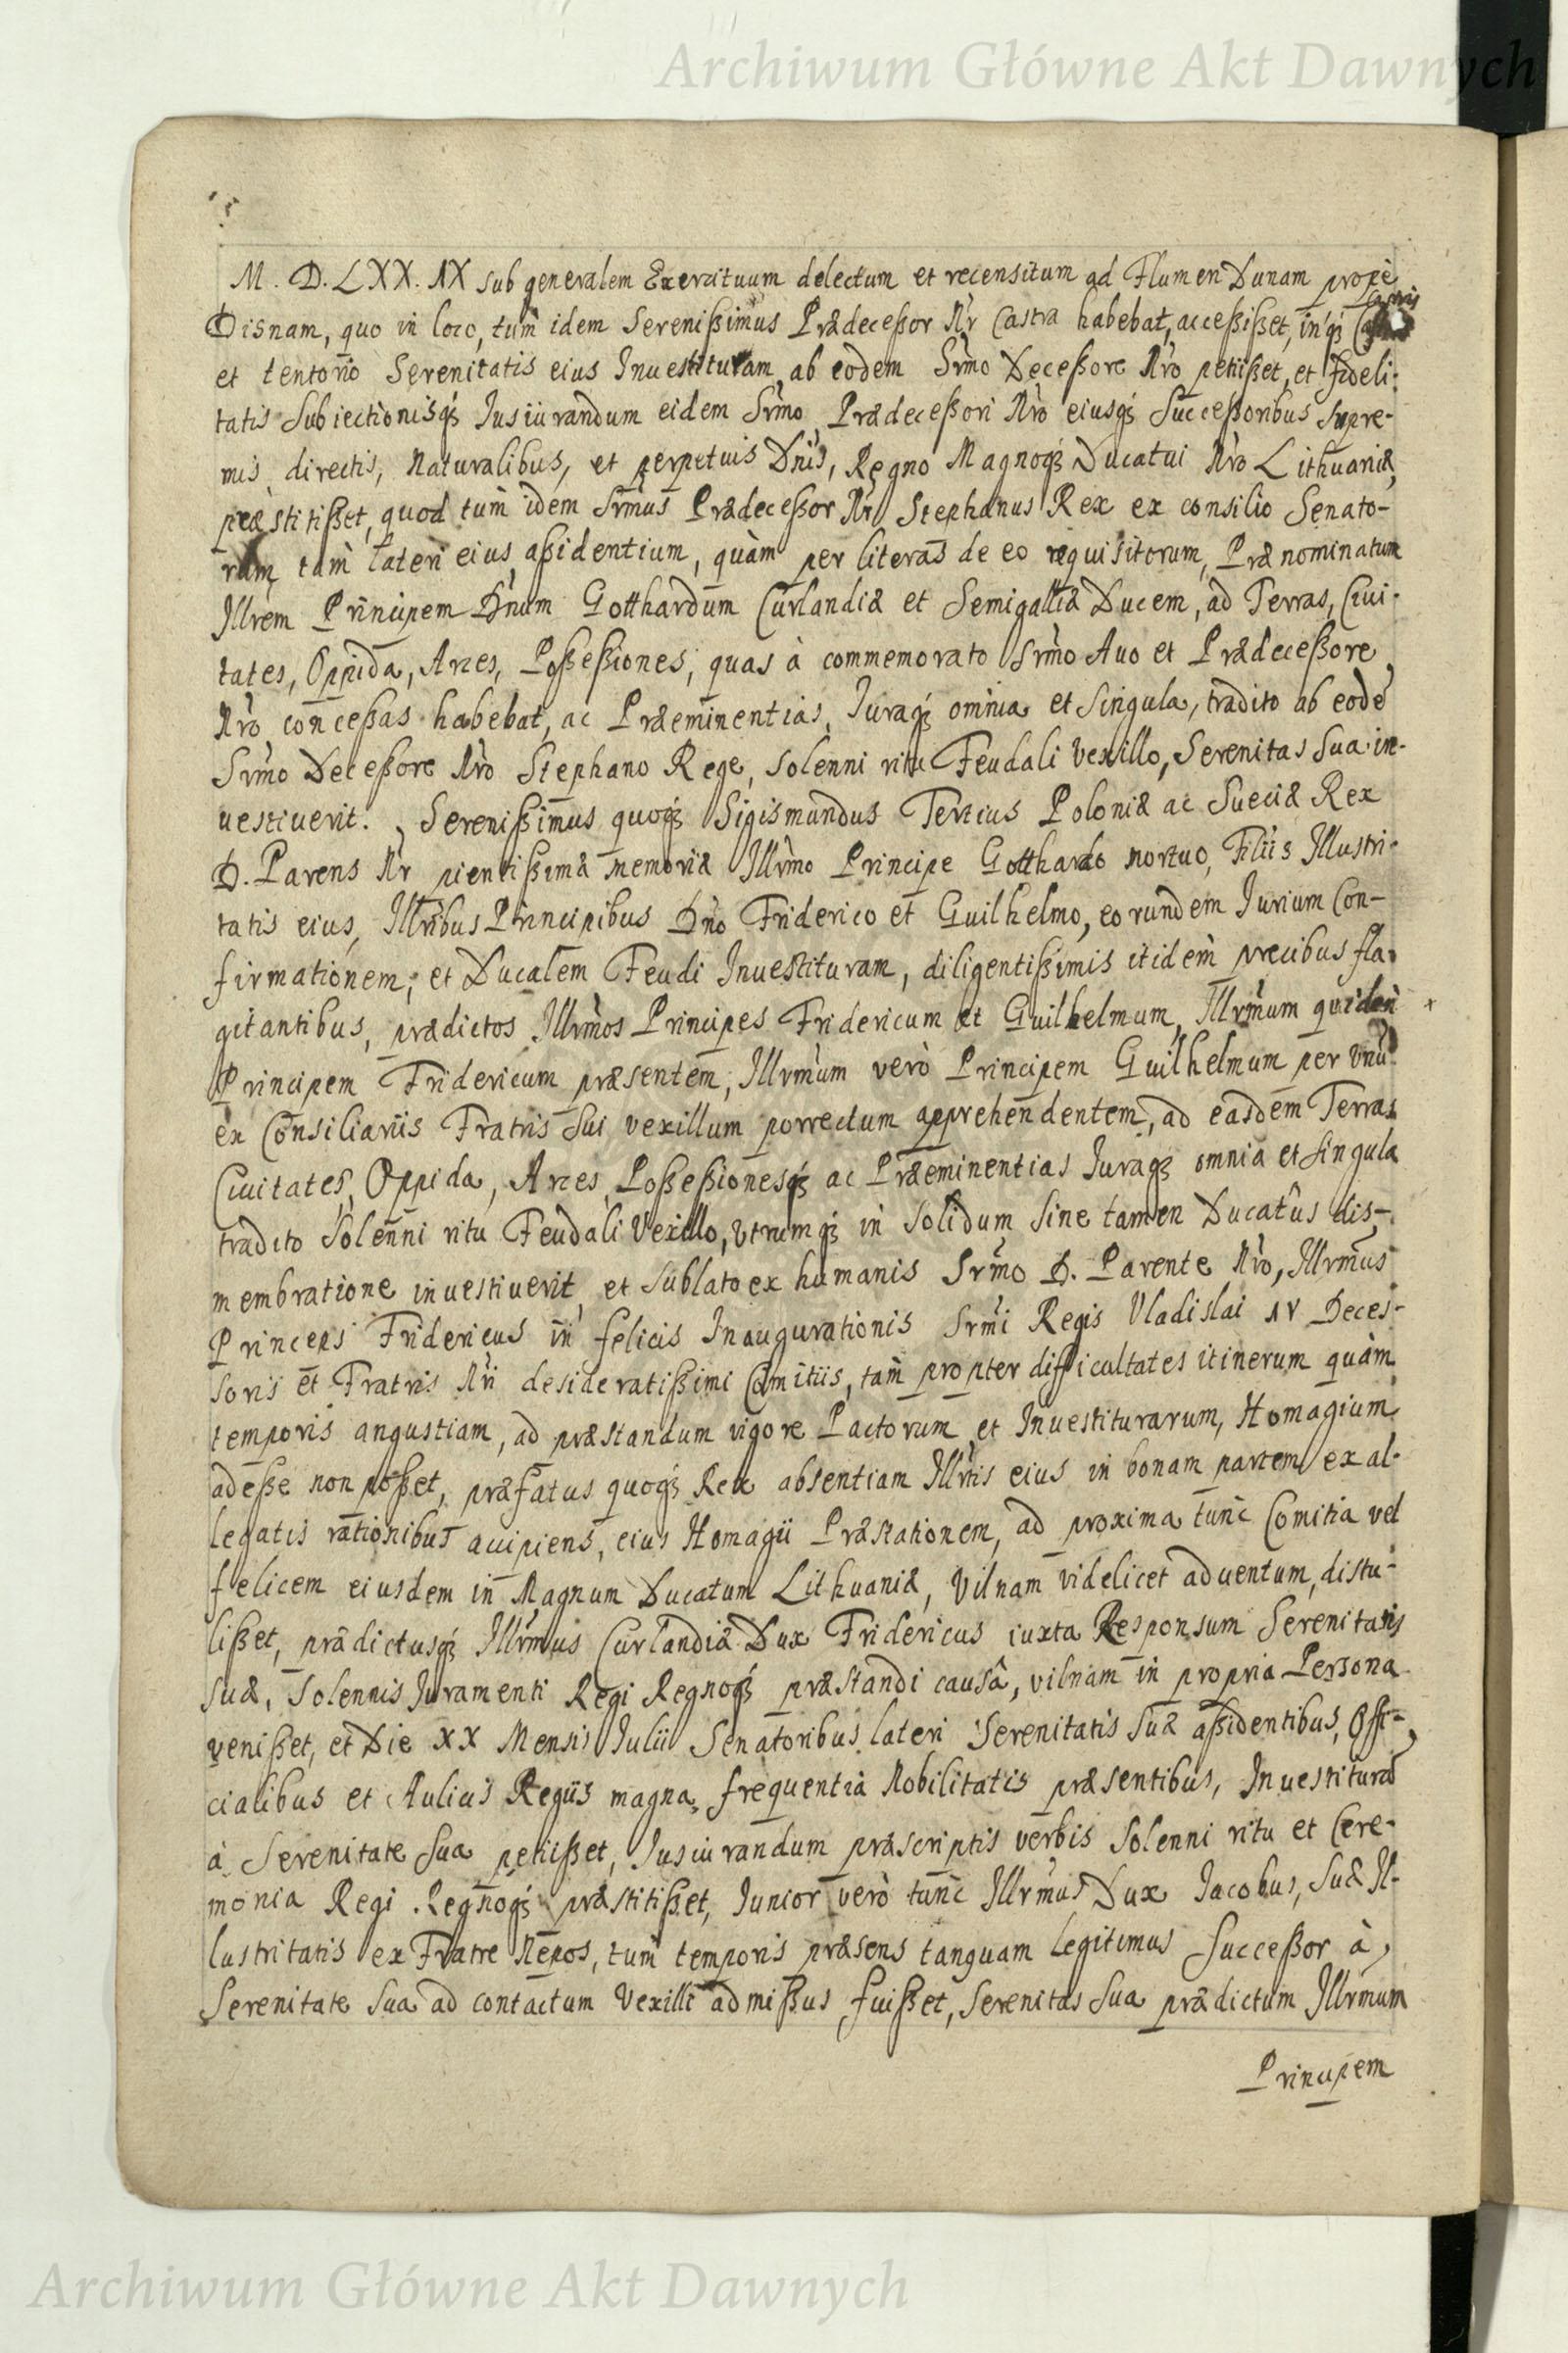 Archiwum Główne Akt Dawnych
M. D. LXX. IX sub generalem Exercituum delectum et recensitum ad Flumen Dunam propè
Disnam, quo in loco, tum idem Serenißimus Prædeceßor Nr Castra habebat, acceßißet, inq́ Castris
et tentorio Serenitatis eius Inuestituram ab eodem Srmo Deceßore Nro petiißet, et fideli-
tatis Subiectionisq́ Iusiurandum eidem Srmo Prædeceßori Nro eiusq́ Succeßoribus Supre-
mis directis, Naturalibus, et perpetuis Dnis, Regno Magnoq́ Ducatui Nro Lithuaniæ
præstitißet, quod tum idem Srmus Prædeceßor Nr Stephanus Rex ex consilio Senato-
rum tam lateri eius aßidentium, quàm per literas de eo requisitorum, Prænominatum
Illrem Principem Dnum Gotthardum Curlandiæ et Semigalliæ Ducem, ad Terras, Ciui-
tates, Oppida, Arces, Poßeßiones, quas à commemorato Srmo Auo et Prædeceßore
Nro conceßas habebat, ac Præeminentias, Iuraq́ omnia et Singula, tradito ab eode
Srmo Deceßore Nro Stephano Rege, solenni ritu Feudali Vexillo, Serenitas Sua in-
uestiuerit. Sereniſsimus quoq́ Sigismundus Tertius Poloniæ ac Sueciæ Rex
D. Parens Nr pientißimæ memoriæ Illrmo Principe Gotthardo mortuo, Filiis Illustri-
tatis eius, Illribus Principibus Dno Friderico et Guilhelmo, eorundem Iurium Con-
firmationem, et Ducalem Feudi Inuestituram, diligentißimis itidem precibus fla-
gitantibus, prædictos Illrmos Principes Fridericum et Guilhelmum, Illrmum quidem
Principem Fridericum præsentem, Illrmum verò Principem Guilhelmum per Vnu
ex Consiliariis Fratris Sui vexillum porrectum apprehendentem, ad easdem Terras
Ciuitates, Oppida, Arces, Poßeßionesq́ ac Præeminentias Iuraq́ omnia et Singula
tradito Solenni ritu Feudali Vexillo, Vtrumq́ in Solidum Sine tamen Ducatûs dis-
membratione inuestiuerit, et Sublato ex humanis Srmo D. Parente Nro, Illrmus
Princeps Fridericus in felicis Inaugurationis Srmi Regis Vladislai IV Deces-
soris et Fratris Nri desideratißimi Comitiis, tam propter difficultates itinerum quàm
temporis angustiam, ad præstandum vigore Pactorum et Inuestiturarum, Homagium
adeße non poßet, præfatus quoq́ Rex absentiam Illrtis eius in bonam partem ex al-
legatis rationibus accipiens, eius Homagii Præstationem, ad proxima tunc Comitia vel
felicem eiusdem in Magnum Ducatum Lithuaniæ, Vilnam videlicet aduentum, distu-
lißet, prædictusq́ Illrmus Curlandiæ Dux Fridericus iuxta Responsum Serenitatis
Suæ, Solennis Iuramenti Regi Regnoq́ præstandi causâ, vilnam in propria Persona
venißet, et Die XX Mensis Iulii Senatoribus lateri Serenitatis Suæ aßidentibus, Offi-
cialibus et Aulicis Regiis magna frequentia Nobilitatis præsentibus, Inuestitura
à Serenitate Sua petiißet, Iusiurandum præscriptis verbis Solenni ritu et Cere-
monia Regi Regnoq́ præstitißet, Iunior verò tunc Illrmus Dux Iacobus, Suæ Il-
lustritatis ex Fratre Nepos, tum temporis præsens tanquam legitimus Succeßor à
Serenitate Sua ad contactum Vexilli admißus fuißet, Serenitas Sua prædictum Illrmum
Principem
Archiwum Główne Akt Dawnych